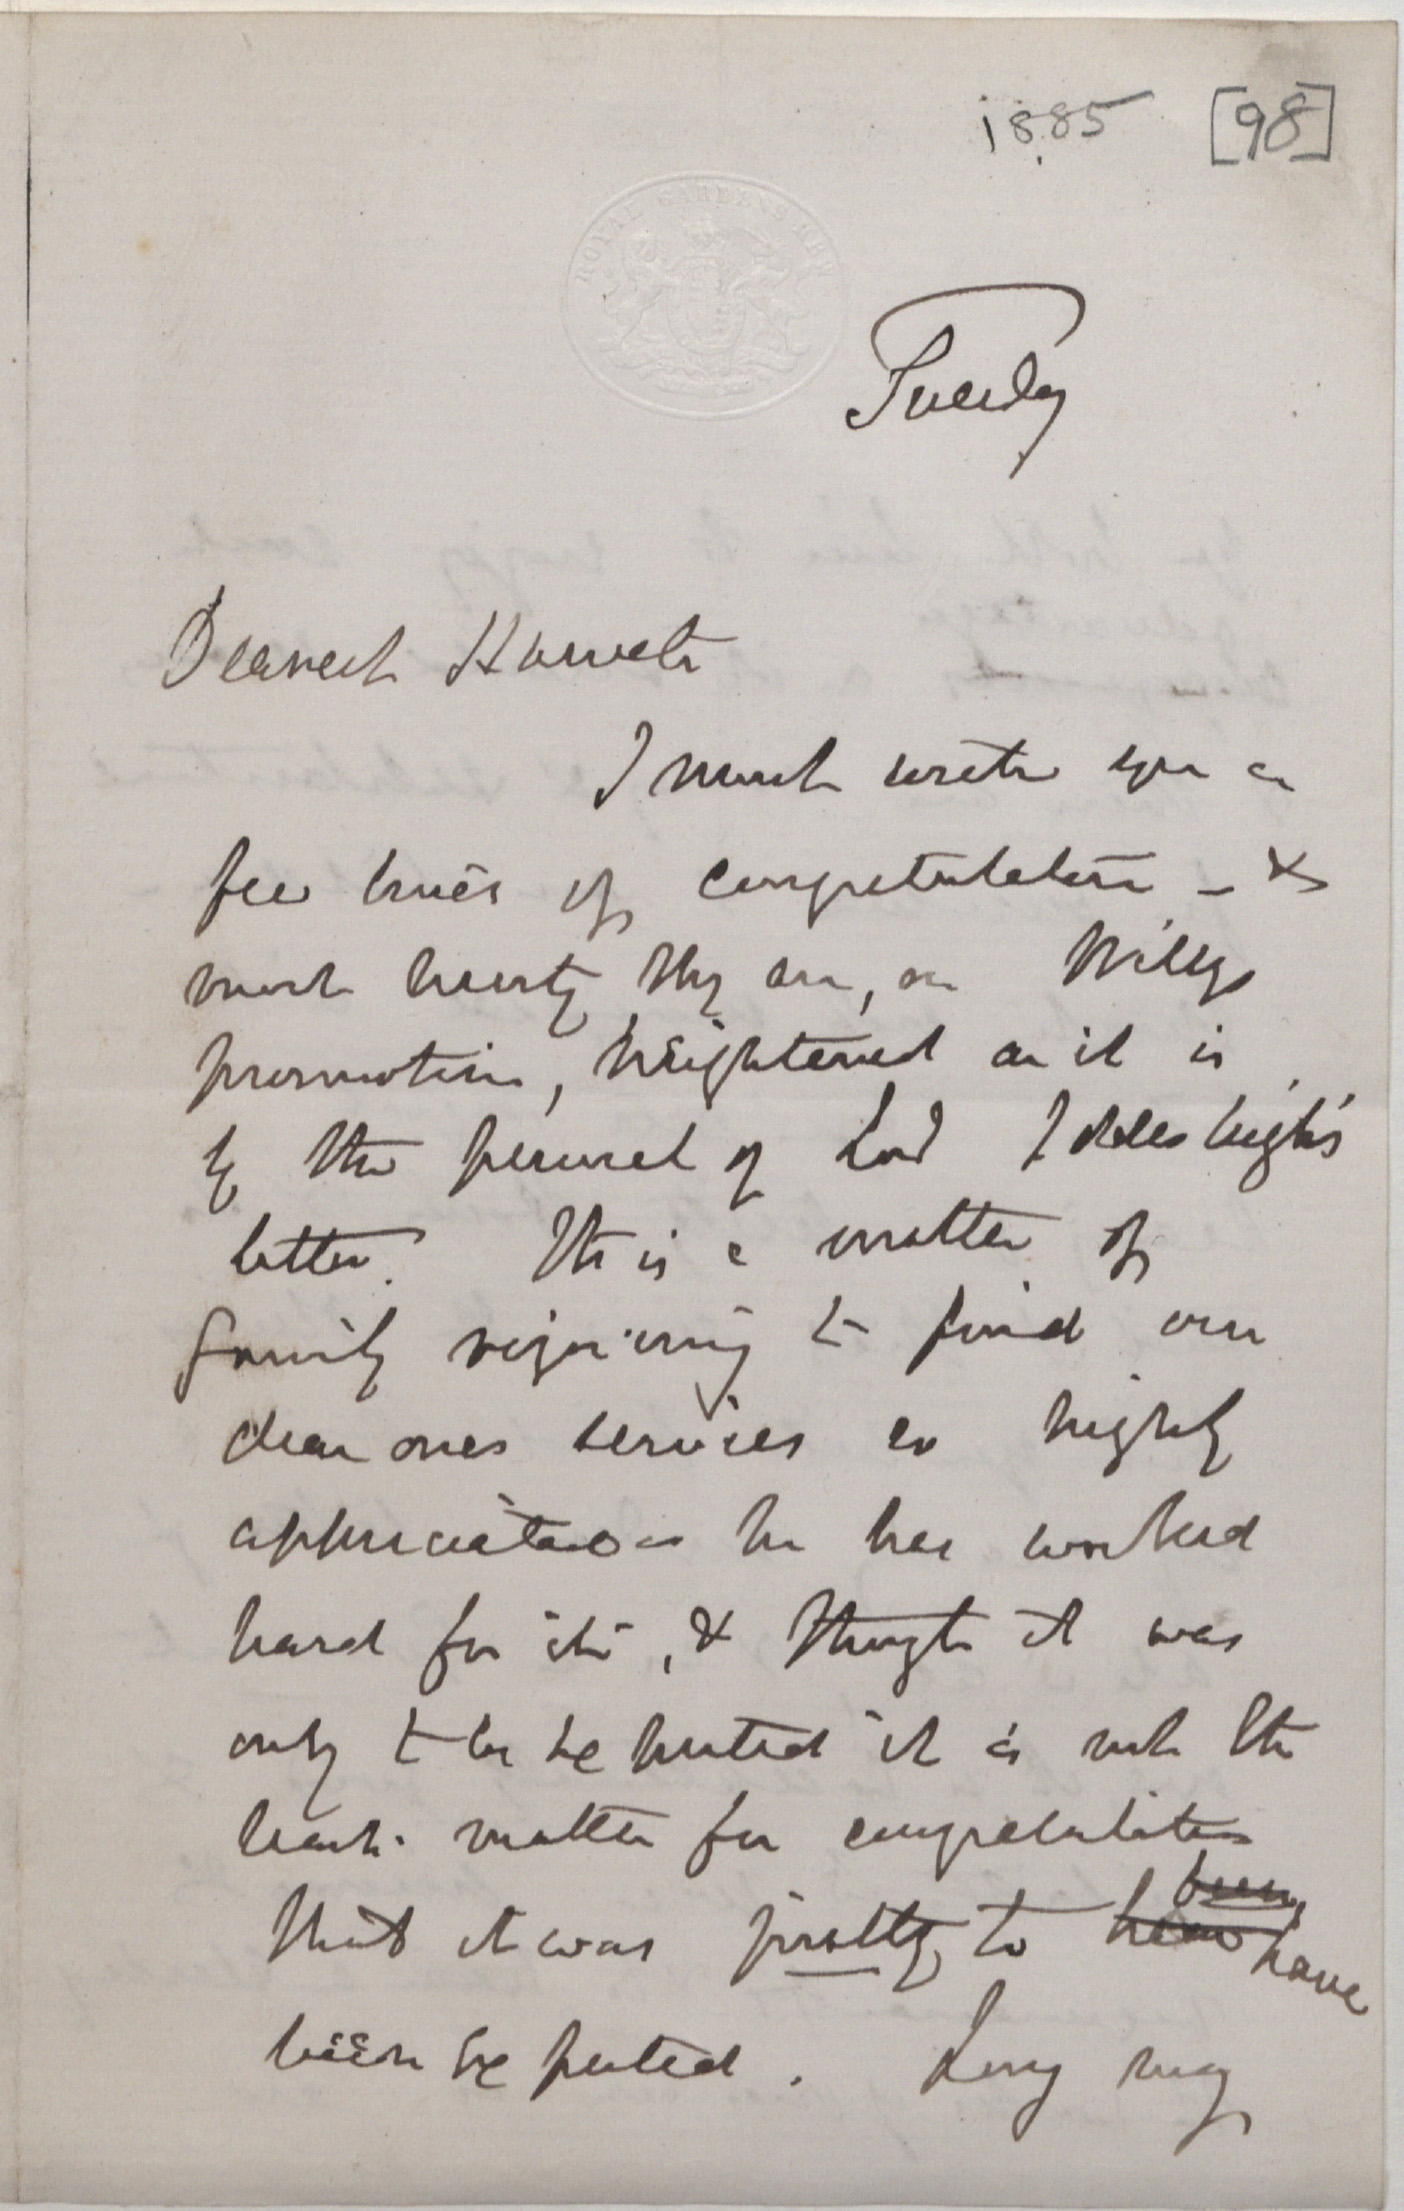 1885 [98]
ROYAL GARDENS KEW
Tuesday
Dearest Harriet
I must write you a
few lines of congratulation - &
most hearty they are, on Willys
promotion, heightened as it is
by the perusal of Lord Iddesleigh's
letter. It is a matter of
family rejoicing to find our
dear ones services so highly
appreciated he has worked
hard for it, & though it was
only to be expected it is not the
least matter for congratulation
that it was justly to have been have
been expected. Long may